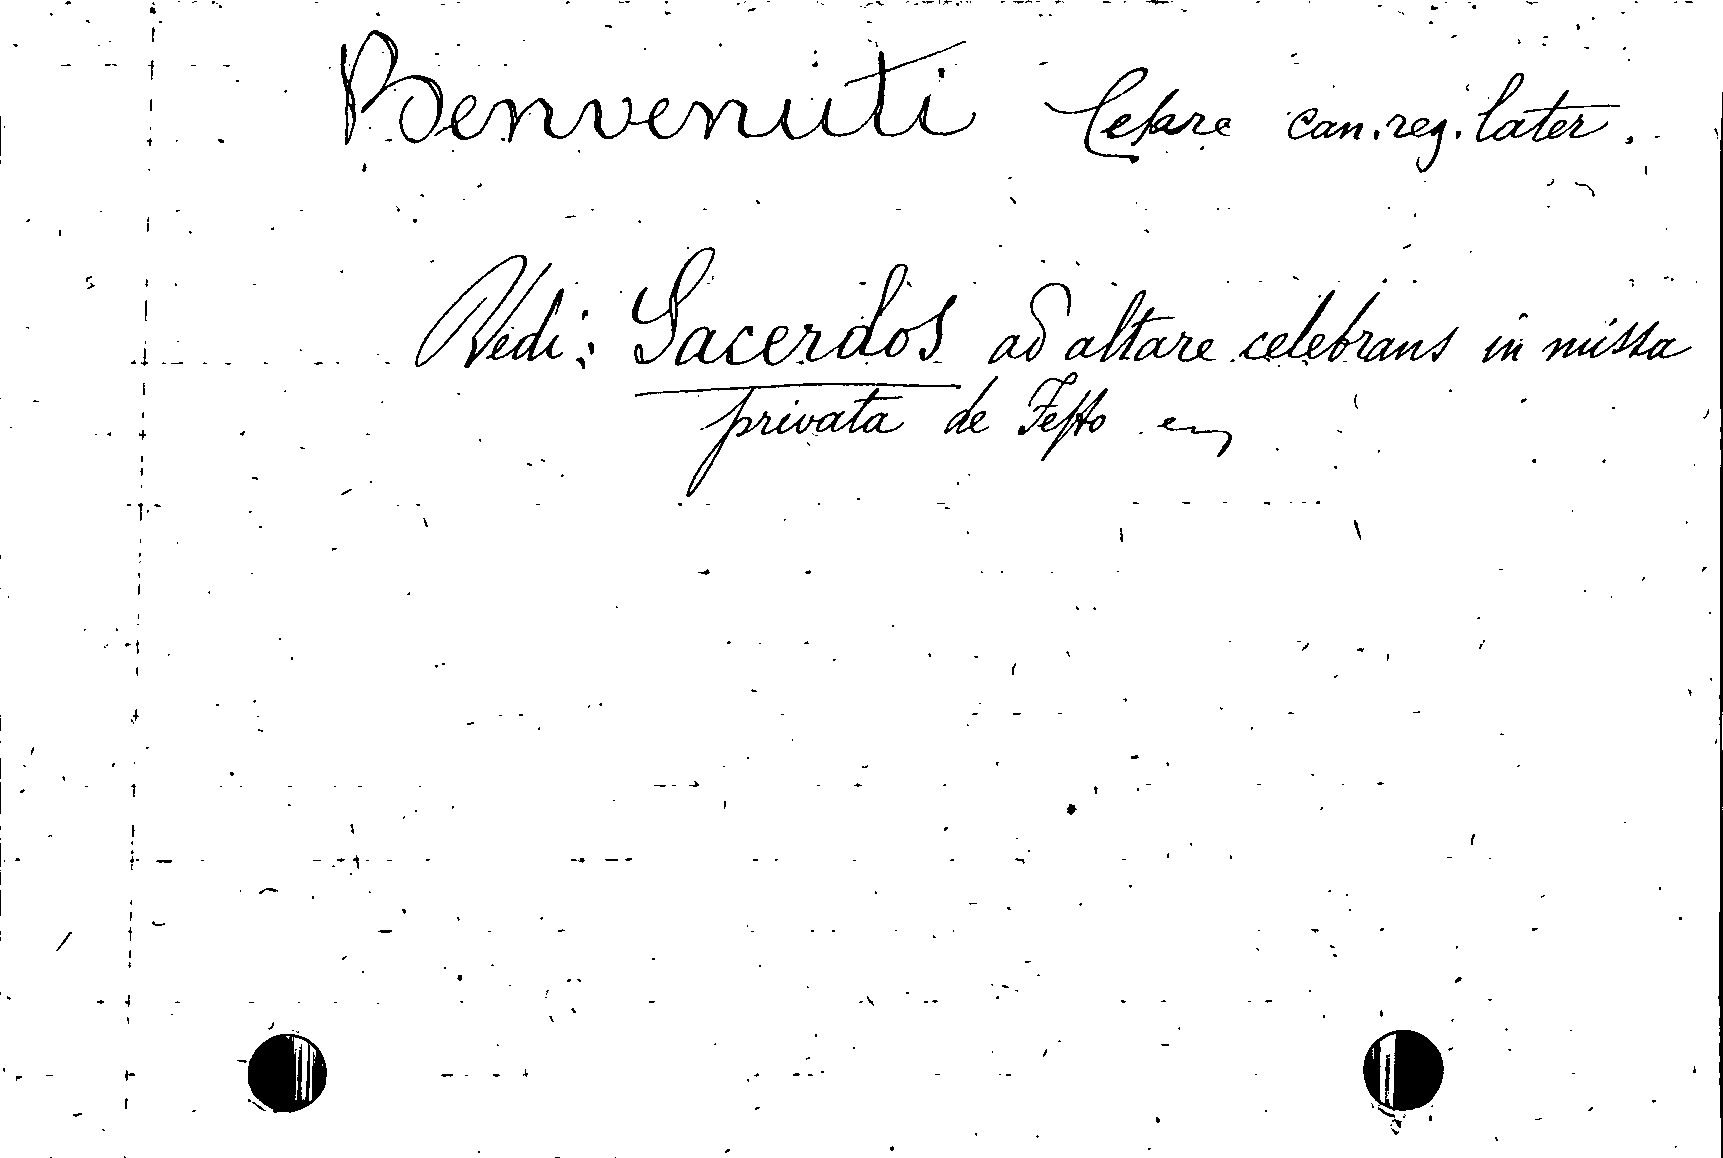 Benvenuti Cesare can. reg. later.
Vedi: Sacerdos ad altare celebrans in missa
privata de Festo